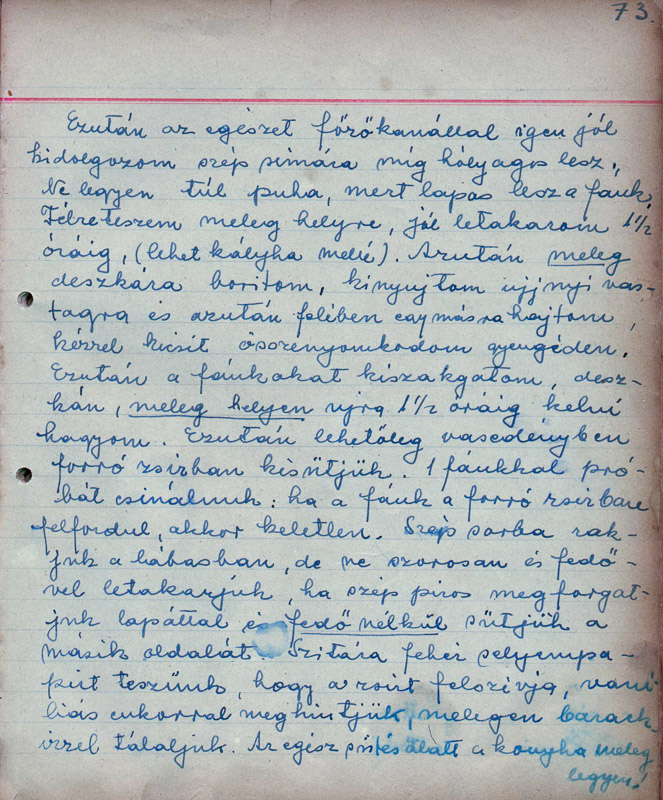 73.
Ezután az egészet főzőkanállal igen jól
kidolgozom szép simára míg hólyagos lesz.
Ne legyen túl puha, mert lapos lesz a fánk.
Félreteszem meleg helyre, jól letakarom 1 1/2
óráig, (lehet kályha mellé). Azután meleg
deszkára boritom, kinyujtom ujjnyi vas-
tagra és azután felében egymásra hajtom,
kézzel kicsit össze nyomkodom gyengéden.
Ezután a fánkokat kiszakgatom, desz-
kán, meleg helyen ujra 1 1/2 óráig kelni
hagyom. Ezután lehetőleg vasedényben
forró zsirban kisütjük. 1 fánkkal pró-
bát csinálunk: ha a fánk a forró zsirban
felfordul, akkor keletlen. Szép sorba rak-
juk a lábasban, de ne szorosan és fedő-
vel letakarjuk, ha szép piros megforgat-
juk lapáttal és fedő nélkül sütjük a
másik oldalát. Szitára fehér selyempa-
pirt teszünk, hogy a zsirt felszivja, vani
liás cukorral meghintjük, melegen barack
izzel tálaljuk. Az egész sütés alatt a konyha meleg
legyen!